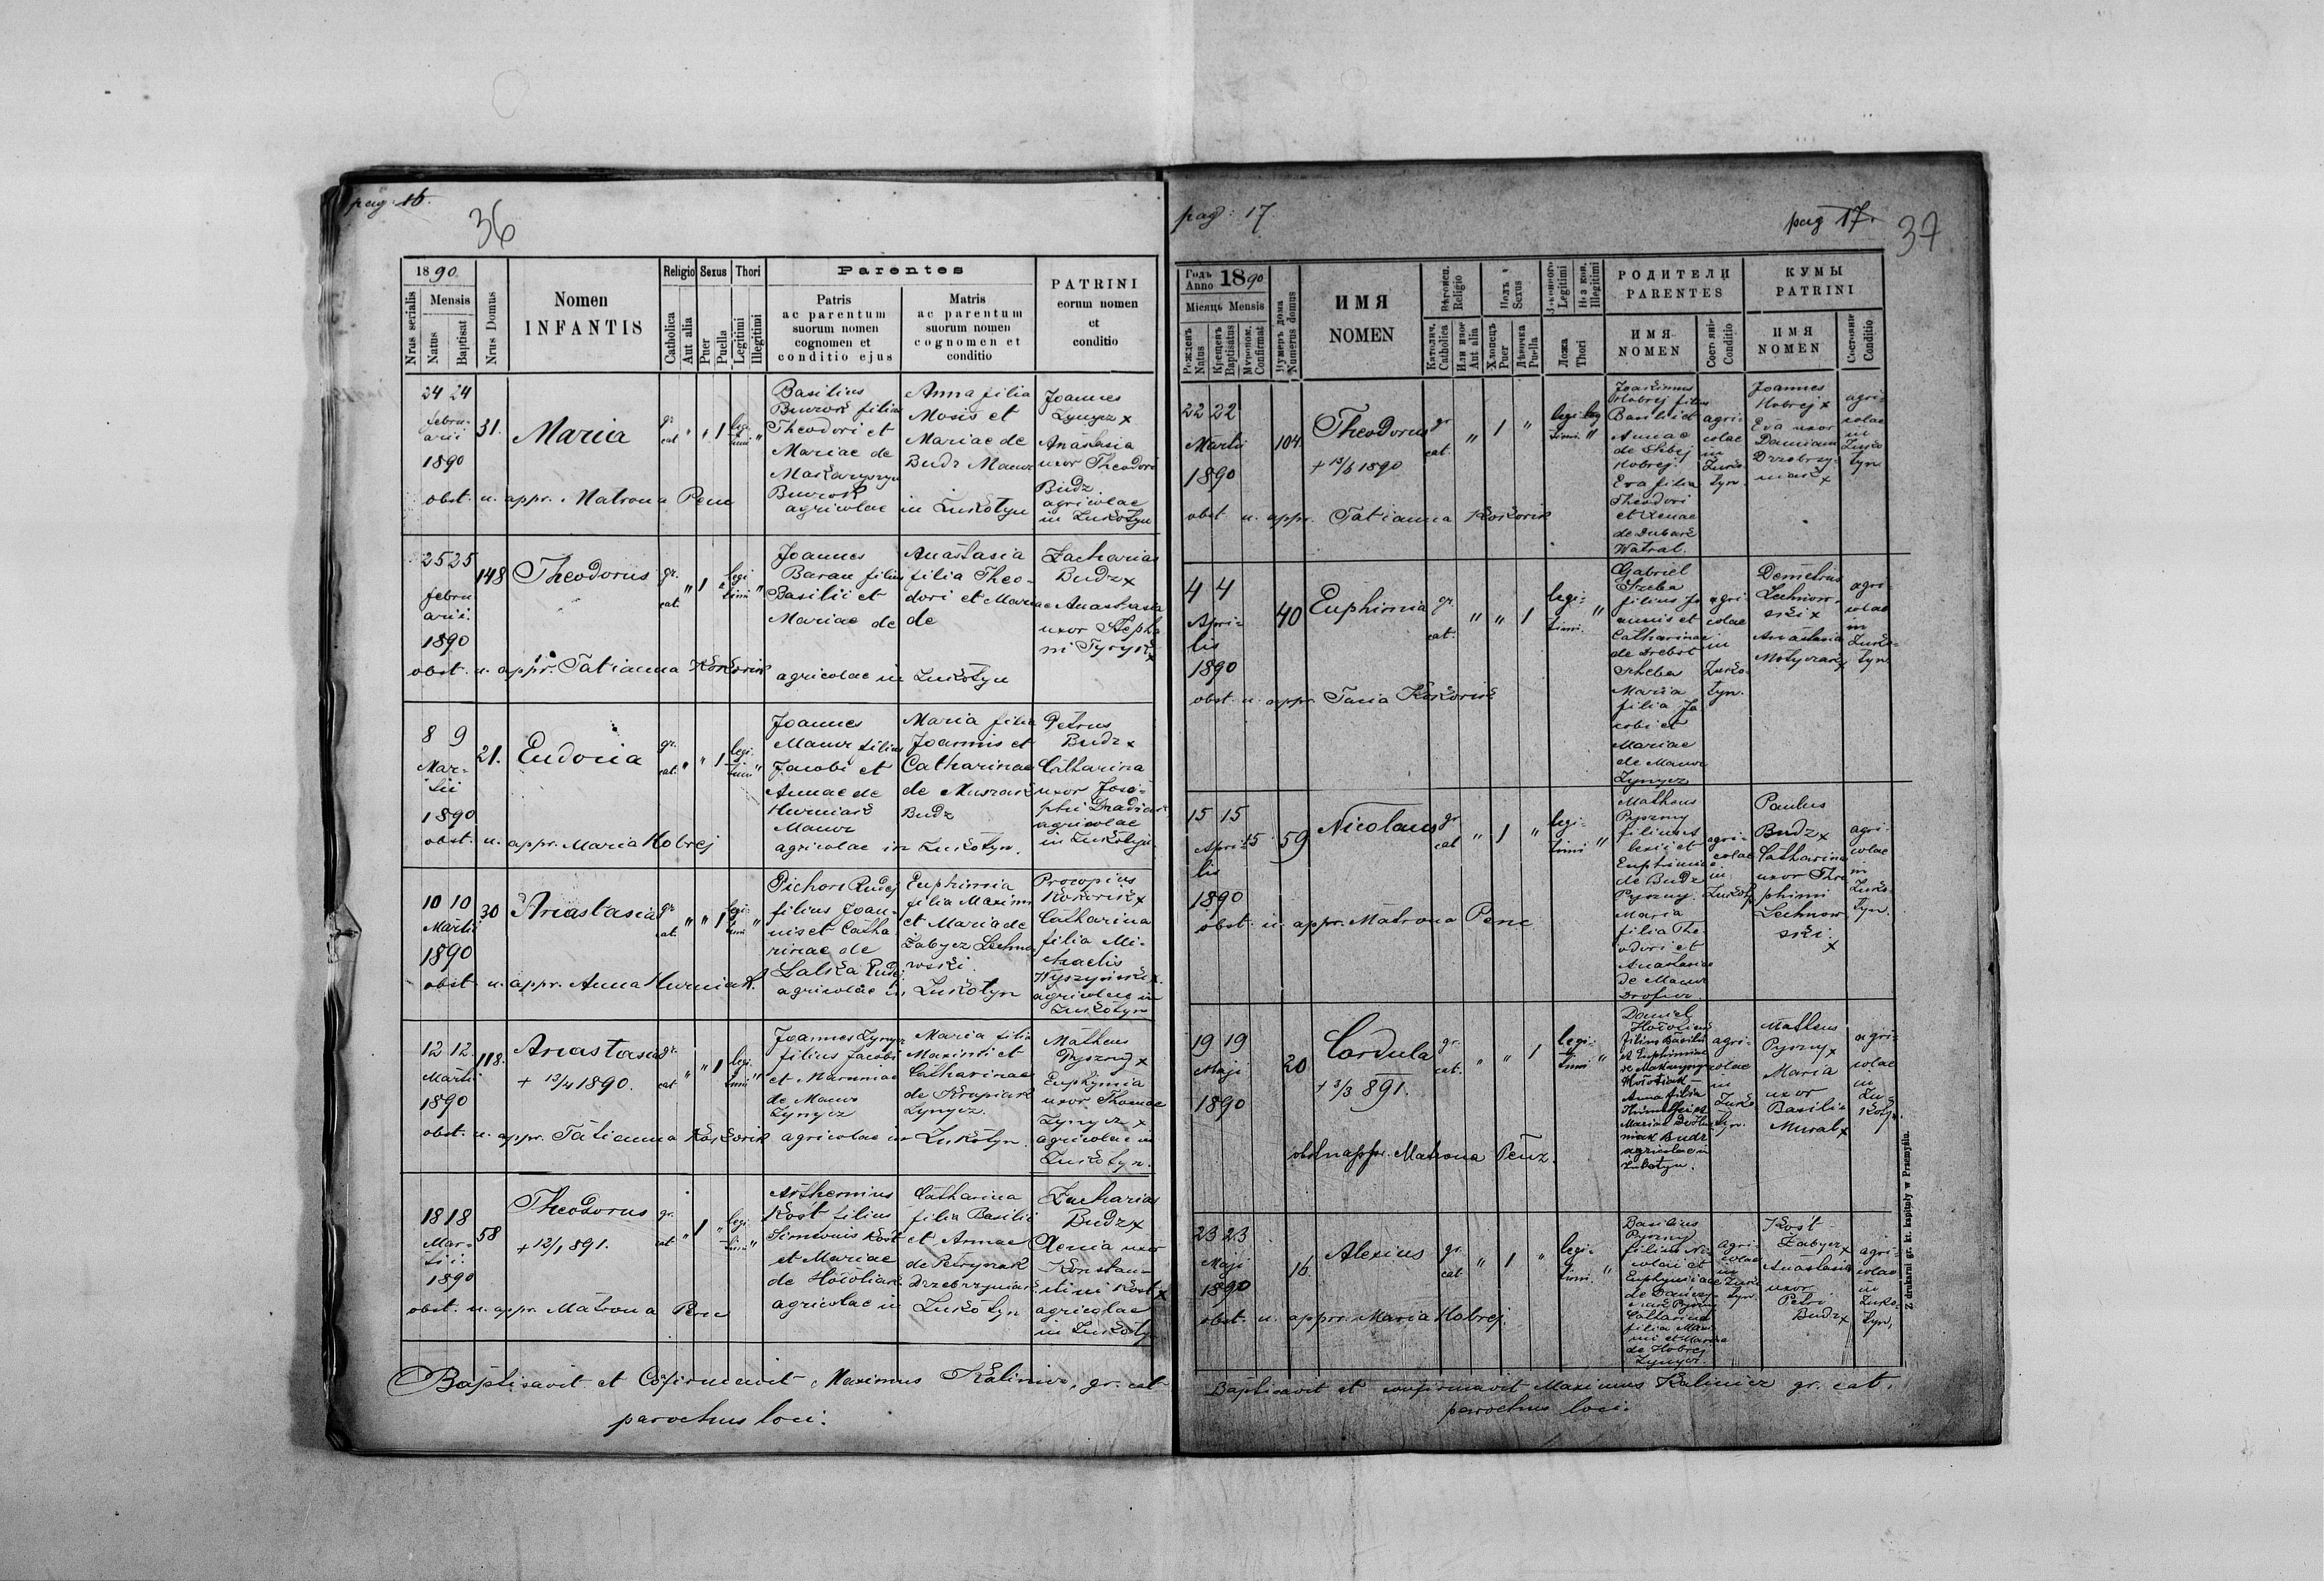 pag. 16.
36
1890
Nrus serialis
Mensis
Natus
Baptisat
Nrus Domus
Nomen
INFANTIS
Religio
Catholica
Aut alia
Sexus
Puer
Puella
Thori
Legitimi
Illegitimi
Parentes
Patris
ac parentum
suorum nomen
cognomen et
conditio ejus
Matris
ac parentum
suorum nomen
cognomen et
conditio
PATRINI
eorum nomen
et
conditio
24 24
febru-
arii
1890
31.
Maria
gr.
cat
" " 1
legi-
timi "
Basilius
filius
Theodori et
Mariae de
agricolae
Anna filia
Mosis et
Mariae de
Budz Mauer
in Żukotyn
Joannes
Zynycz x
Anastasia
uxor Theodori
Budz
agricolae
in Żukotyn
obst. u. appr. Matrona Penc
25 25
febru
arii.
1890
148
Theodorus
gr.
cat.
" 1 "
legi
timi "
Joannes
Baran filius
Basilii et
Mariae de
agricolae in
Anastasia
filia Theo-
dori et Mariae
de
Żukotyn
Zacharias
Budz x
Anastasia
uxor Stepha
ni
obst. u. appr. Tatianna Kokorik
8 9
Mar-
tii
1890
21.
Eudoxia
gr.
cat.
" " 1
legi.
timi "
Joannes
Mauer filius
Jacobi et
Annae de
Hurniak
Mauer
agricolae in
Maria filia
Joannis et
Catharinae
de
Budz
Żukotyn.
Petrus
Budz x
Catharina
uxor Jose-
phi
agricolae
in Żukotyn
obst. u. appr. Maria Hobrej
10 10
Martii
1890
30
Anastasia
gr.
cat.
" " 1
legi
timi "
Rudej
filius Joan-
nis et Catha
rinae de
agricolae in
Euphimia
filia Maximi
et Maria de
Zabycz Lechno-
wski.
Żukotyn
Procopius
Kokorik x
Catharina
filia Mi-
chaelis
agricolae in
Żukotyn
obst. u. appr. Anna Hurniak.
12 12.
Martii
1890
118.
Anastasia
+ 13/4 1890.
gr.
cat
" " 1
legi.
timi "
Joannes Zynycz
filius Jacobi
et Mariniae
de Mauer
Zynycz
agricolae in
Maria filia
Maximi et
Catharinae
de Krupiak
Zynycz.
Żukotyn.
Matheus
Pyszny x
Euphymia
uxor Thomae
Zynycz x
agricolae in
Żukotyn.
obst. u. appr. Tatianna Kokorik
18 18
Mar-
tii.
1890
58
Theodorus
+ 12/1 891.
gr.
cat
" 1 "
legi.
timi "
Arthemius
Kost filius
Simeonis Kost
et Mariae
de Hocoliak
agricolae in
Catharina
filia Basilii
et Annae
de Petryczak
Drzebrzyniak
Żukotyn
Zacharias
Budz x
Xenia uxor
Konstan-
tini Kost x
agricolae
in Żukotyn
obst. u. appr. Matrona Penc
Baptisavit et Cofirmavit Maximus Kaliniez, gr. cat
parochus loci.
pag: 17
pag 17.
37
Годъ
Anno 1890
Місяць Mensis
Рожденъ
Natus
Крещенъ
Baptisatus
Мѵропом.
Confirmat
Нумеръ дома
Numerus domus
ИМЯ
NOMEN
Вѣроисп.
Religio
Католич.
Catholica
Или иное
Aut alia
Полъ
Sexus
Хлопець
Puer
Дѣвочка
Puella
Legitimi
Illegitimi
Ложа
Thori
РОДИТЕЛИ
PARENTES
ИМЯ
NOMEN
Состояніе
Conditio
КУМЫ
PATRINI
ИМЯ
NOMEN
Состояніе
Conditio
22 22
Martii
1890
104
Theodorus
+ 13/6 1890
gr
cat.
" 1 "
legi-
timi "
Joakimus
Hobrej filius
Basilii et
Annae
de
Hobrej.
Eva filia
Theodori
et Xeniae
de Dubak
Watral.
agri-
colae
in
Żuko-
tyn.
Joannes
Hobrej x
Eva uxor
Damiani
Drzebrzy-
niak x
agri-
colae
in
Żuko
tyn
obst. u. appr. Tatianna Kokorik
4 4
Apri-
lis
1890
40
Euphimia
gr.
cat.
" " 1
legi-
timi. "
Gabriel
filius Jo
annis et
Catharinae
de
Maria
filia Ja
cobi et
Mariae
de Mauer
Zynycz
agri-
colae
in
Żuko-
tyn.
Demetrius
Lechnow-
ski x
Anastasia
Motyczak x
agri-
colae
in
Żuko-
tyn
obst. u. appr. Tacia Kokorik
15 15
Apri-
lis
15
1890
59
Nicolaus
gr.
cat
" 1 "
legi-
timi "
Matheus
Pyszny
filius A
lexii et
Euphimiae
de Budz
Pyszny.
Maria
filia The
odori et
Anastasiae
de Mauer
agri-
colae
in
Żukoty
Paulus
Budz x
Catharina
uxor
phimi
Lechnow
ski.
x
agri-
colae
in
Żuko-
tyn.
obst. u. appr. Matrona Penc
19 19
Maji
1890
20
Cordula
+ 3/3 891.
gr.
cat.
" " 1
legi-
timi "
Daniel
Hocoliak
filius Basilii
et Euphimiae
Anna filia
et
Mariae de Hur
niak Budz
agricolae in
Żukotyn.
agri-
colae
in
Żuko
tyn.
Matheus
Pyszny x
Maria
uxor
Basilii
Mural x
agri-
colae
in
Żu-
koty.
obst u appr. Matrona Penz.
23 23
Maji
1890
16
Alexius
gr.
cat
" 1 "
legi-
timi. "
Basilius
Pyszny
filius Ni-
colai et
Euphymiae
de
Pyszny
Catharina
filia Maxi
mi et Mariae
de Hobrej
Zynycz.
agri-
colae
in
Żuko
tyn.
Kost
Zabycz x
Anastasia
uxor
Petri
Budz x
agri-
colae
in
Żuko-
tyn.
obst. u. appr. Maria Hobrej.
Baptisavit et confirmavit Maximus Kaliniez gr. cat.
parochus loci.
Z drukarni gr. kt. kapituły w Przemyślu.